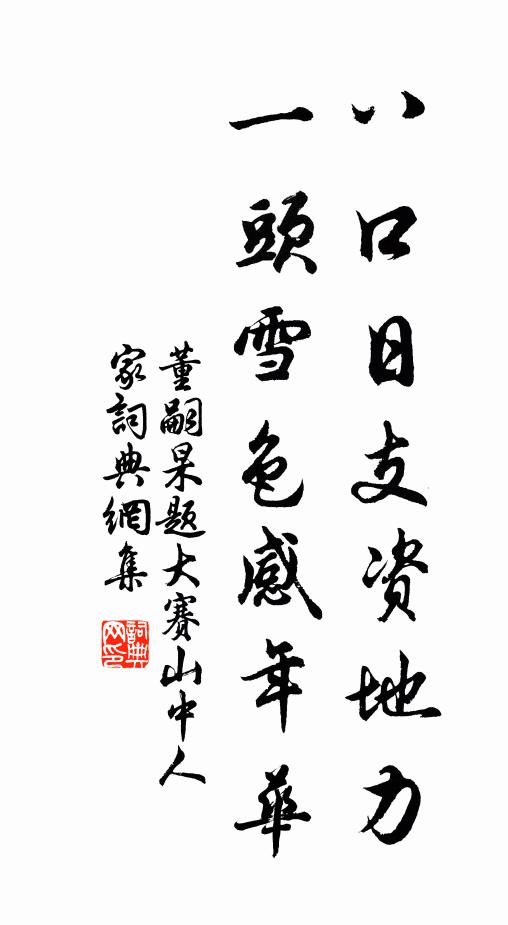 八口日支資地力
一頭雪色感年華
董嗣杲题大賽山中人
家詞典網集
詞典網印